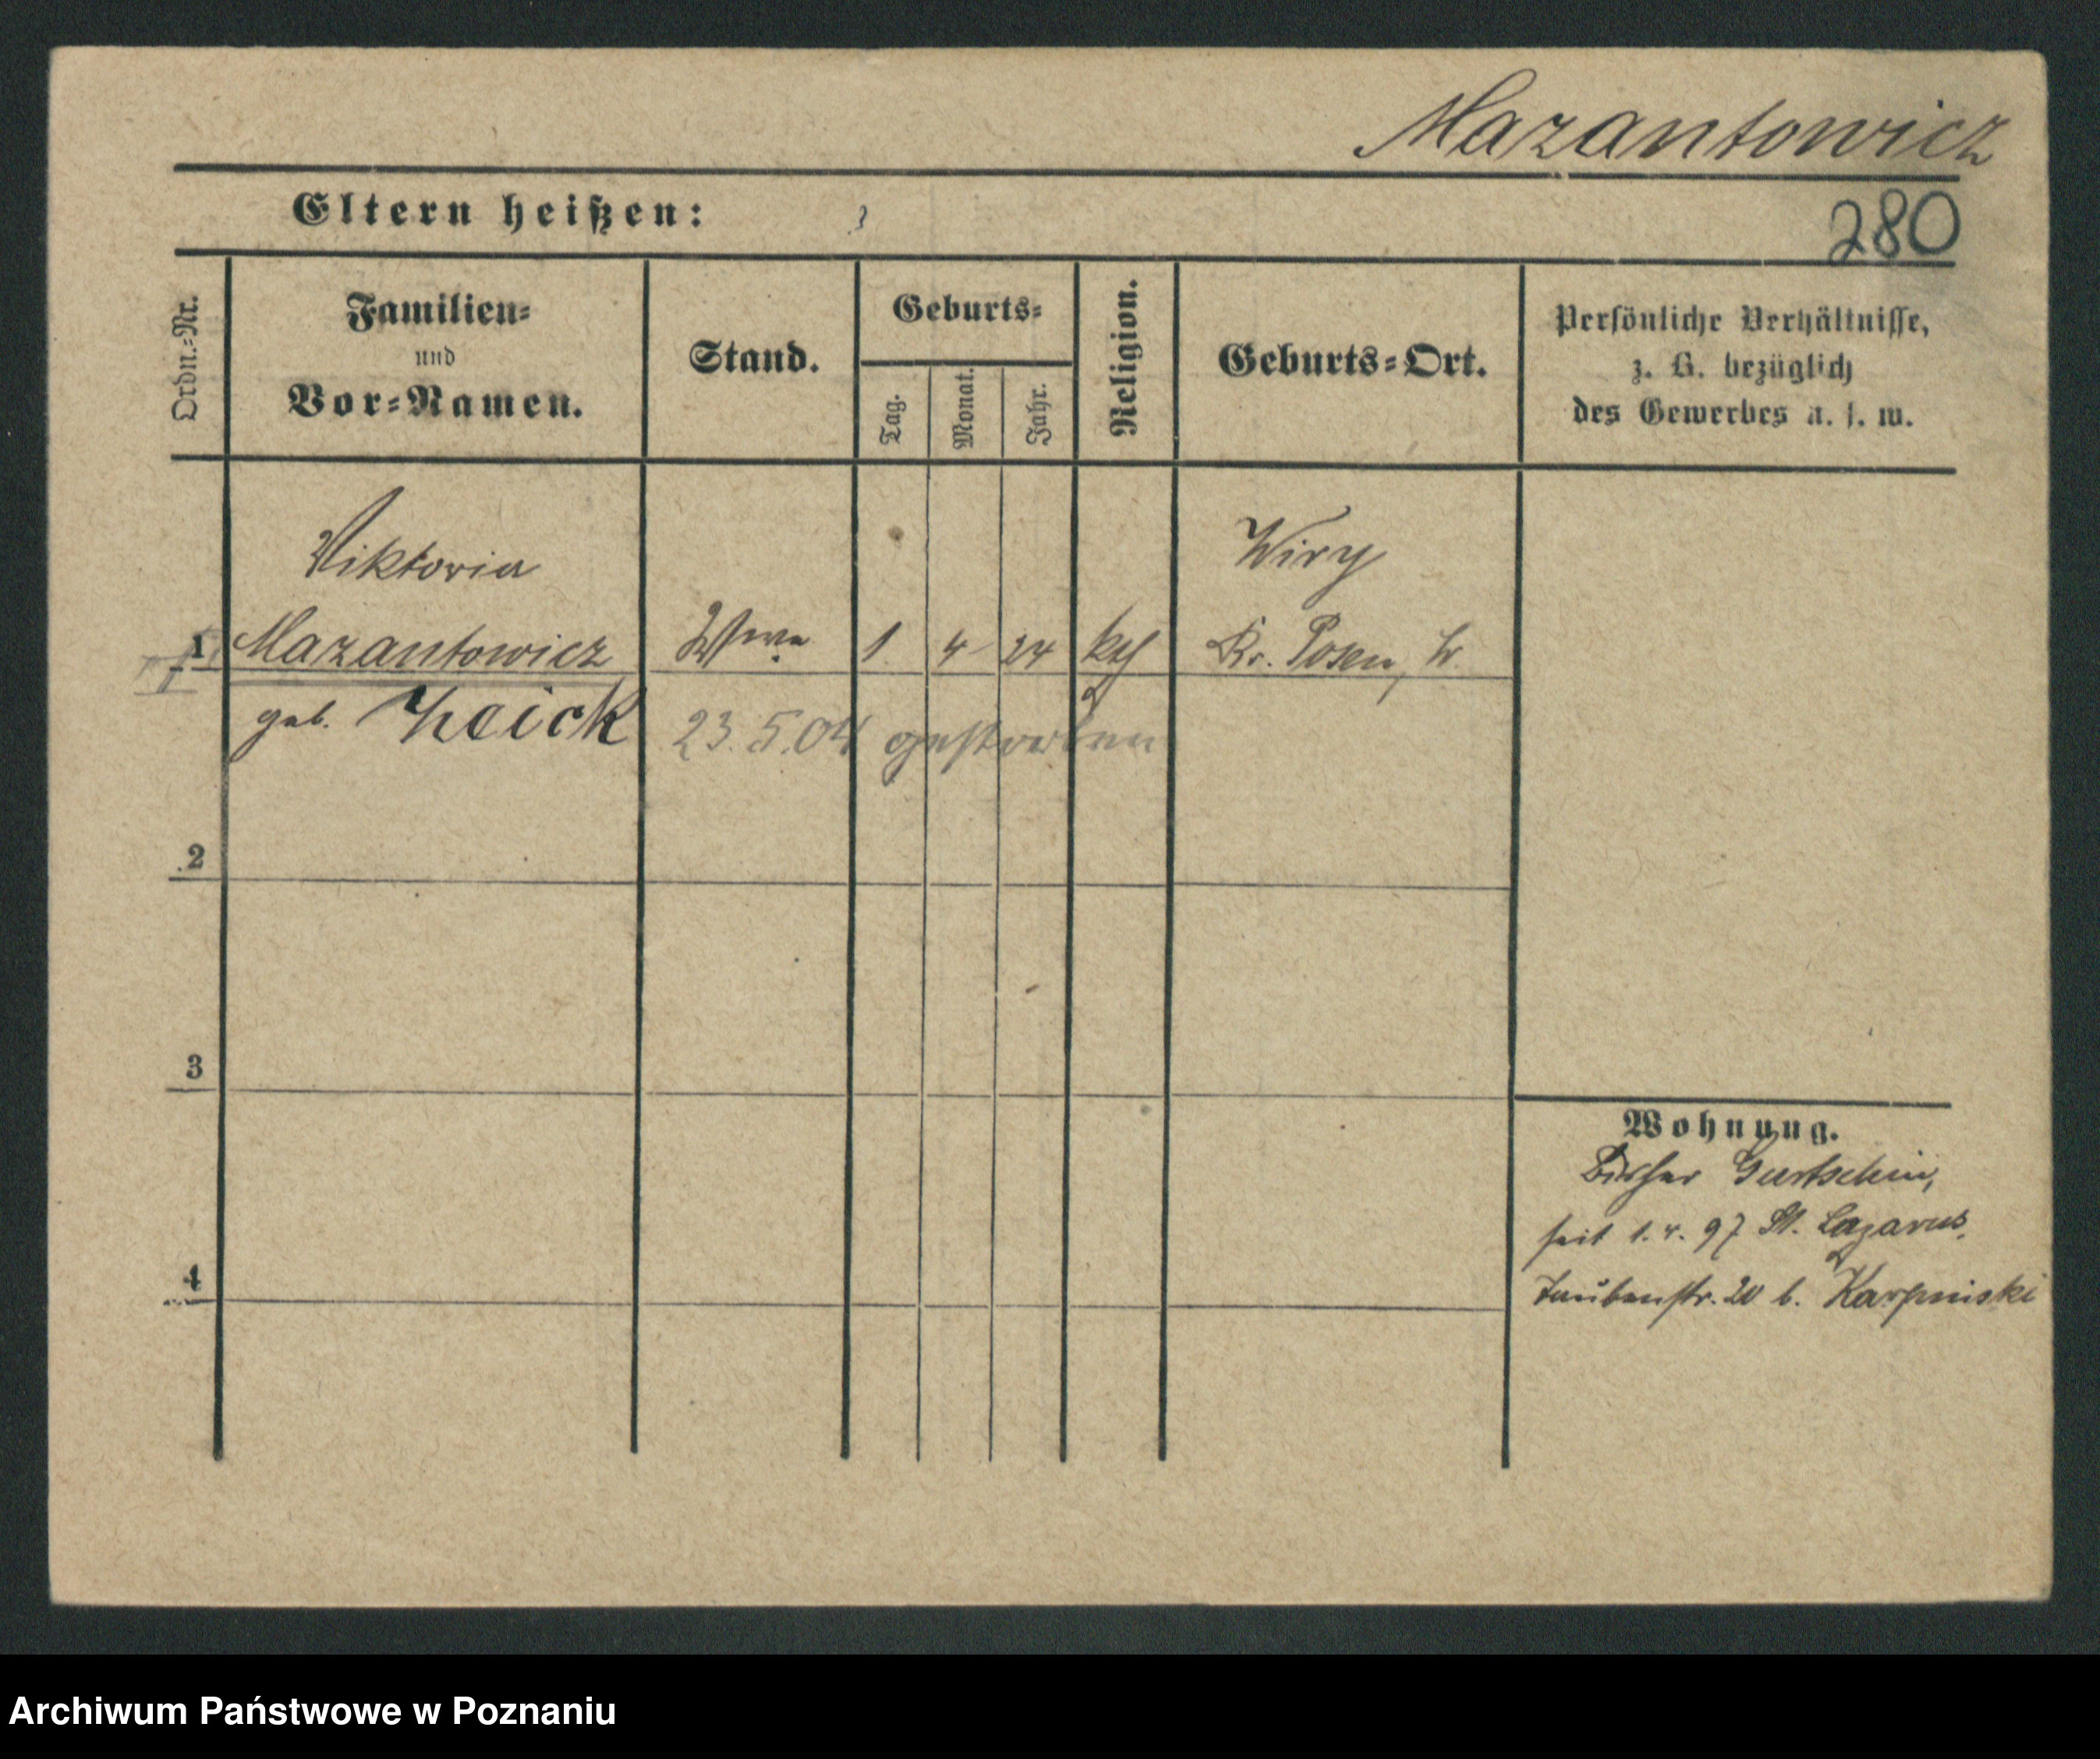 Mazantowicz
Eltern heißen: ?
280
Ordn.-Nr.
Familien-
und
Vor-Namen.
Stand.
Geburts-
Tag.
Monat.
Jahr.
Religion.
Geburts-Ort.
Persönliche Verhältnisse,
z. B. bezüglich
des Gewerbes u. s. w.
Viktoria
Wiry
1 Mazantowicz Wwe 1 4 24 kth Kr. Posen, W.
geb. 23.5.04 gestorben
2
3
4
Wohnung.
Bisher Gurtschin,
seit 1.4.97 St. Lazarus,
Taubenstr. 20 b. Karpinski
Archiwum Państwowe w Poznaniu